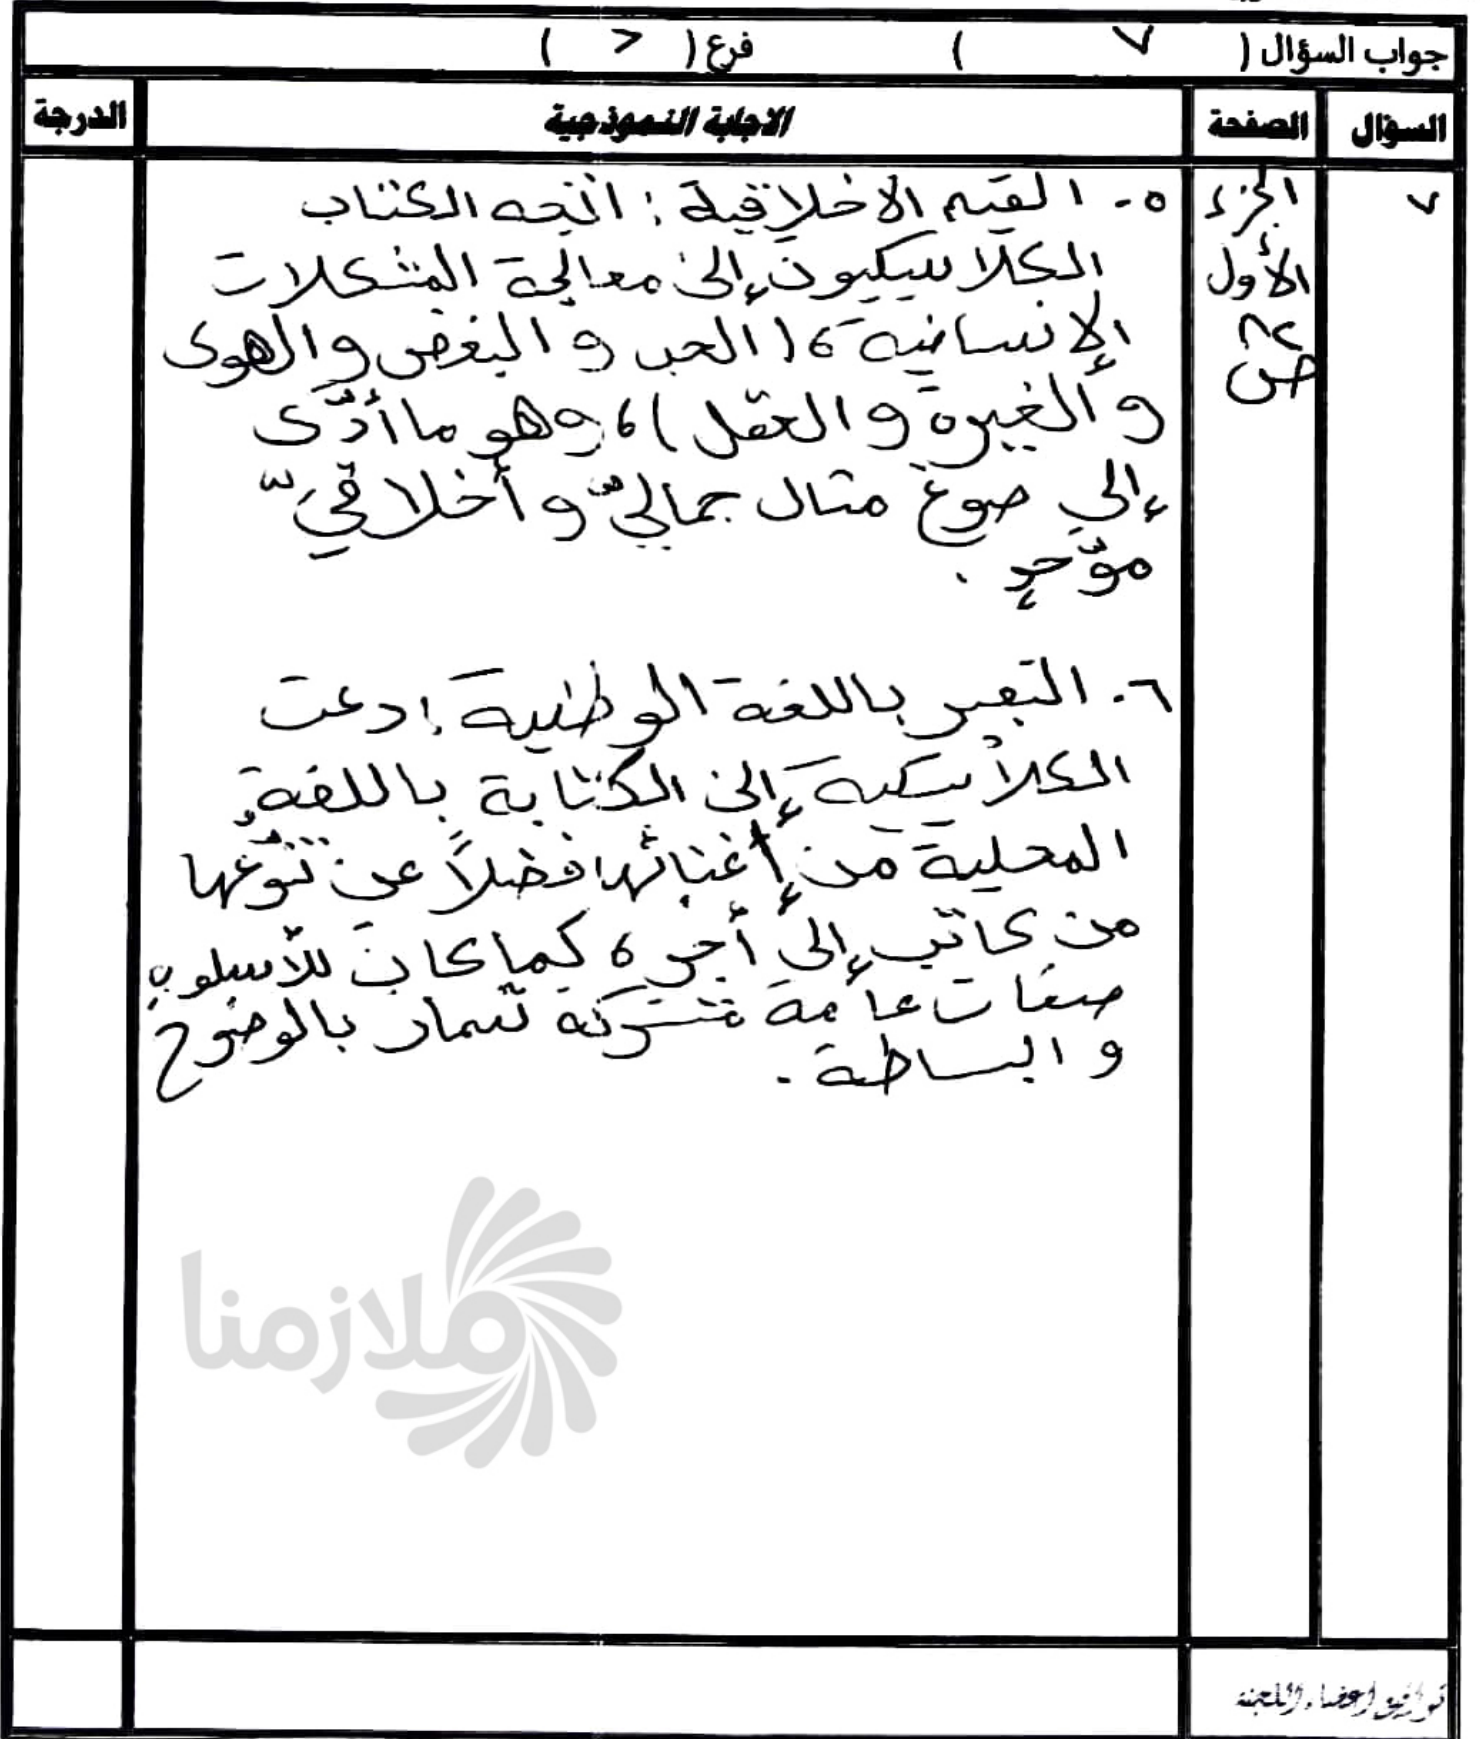 جواب السؤال ( ٧ ) فرع ( > )
السؤال الصفحة الاجابة النموذجية الدرجة
٧ الجزء الأول ٨٢ ص
٥- القيم الاخلاقية : اتجه الكتاب
الكلاسيكيون إلى معالجة المشكلات
الإنسانية ، ( الحب والبغض والهوى
والغيرة والعقل ) ، وهو ما أدّى
إلى صوغ مثال جماليّ وأخلاقيّ
موّحدٍ .
٦- التعبير باللغة الوطنية : دعت
الكلاسيكية إلى الكتابة باللغةِ
المحلية من إغنائها فضلاً عن تنوّعها
من كاتب إلى أخر ، كما كان للأسلوبِ
صفات عامة مشتركة تمتاز بالوضوح
والبساطة .
ملازمنا
تواقيع اعضاء اللجنة